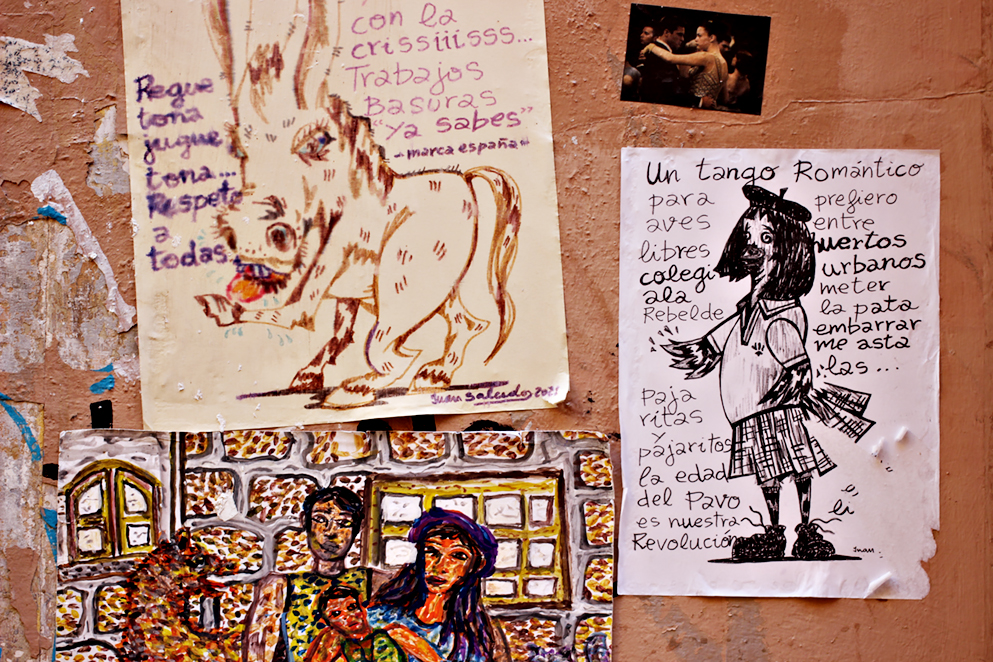 con la
crissiiisss...
Trabajos
Basuras
"ya sabes"
-marca españa-
Regue
tona
jugue
tona...
Respeto
a
todas.
Juan Salcedos 2021
Un tango Romántico
para
aves
libres
colegi
ala
Rebelde
prefiero
entre
huertos
urbanos
meter
la pata
embarrar
me asta
las...
paja
ritas
y
pajaritos
la edad
del Pavo
es nuestra
Revolución
Juan.